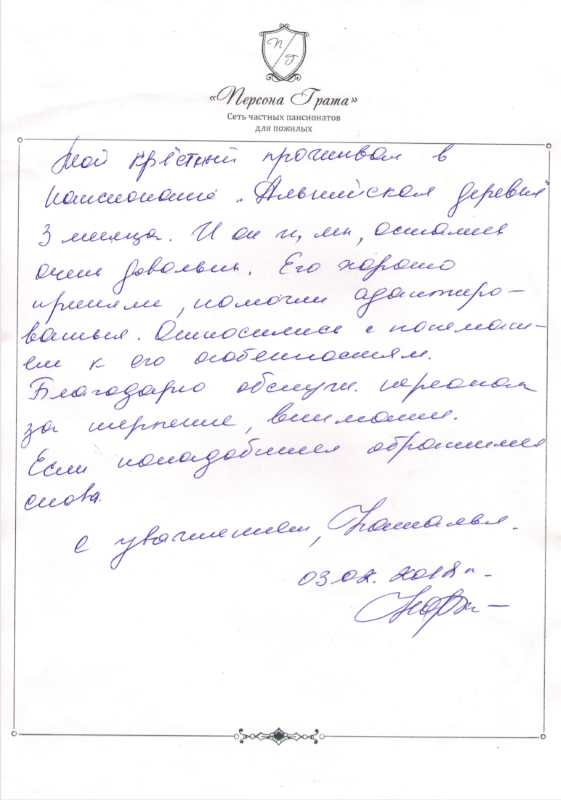 П Г
«Персона Грата»
Сеть частных пансионатов
для пожилых
Мой крёстный проживал в
пансионате „Альпийская деревня"
3 месяца. И он и, мы, остались
очень довольны. Его хорошо
приняли, помогли адаптиро-
ваться. Относились с понимани-
ем к его особенностям.
Благодарю обслуж. персонал
за терпение, внимание.
Если понадобится обратимся
снова.
с уважением, Наталья.
03.02.2018г.